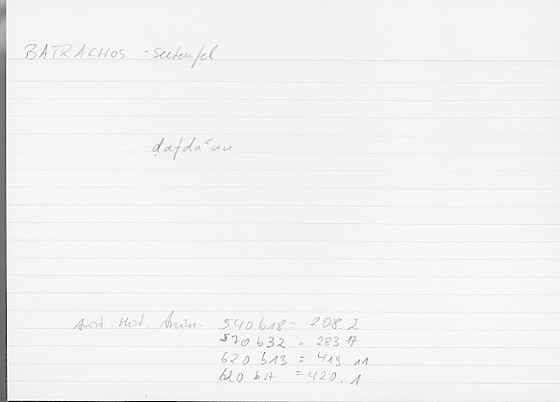 BATRACHOS = Seeteufel
ḍafdaʿun
Arist. Hist. Anim. 540 b18 = 208.2
570 b32 = 283 17
620 b13 = 419 11
620 b27 = 420.1